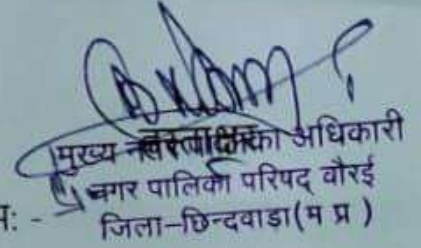 मुख्य नगर पालिका अधिकारी
नगर पालिका परिषद् चौरई
जिला-छिन्दवाडा(म प्र )